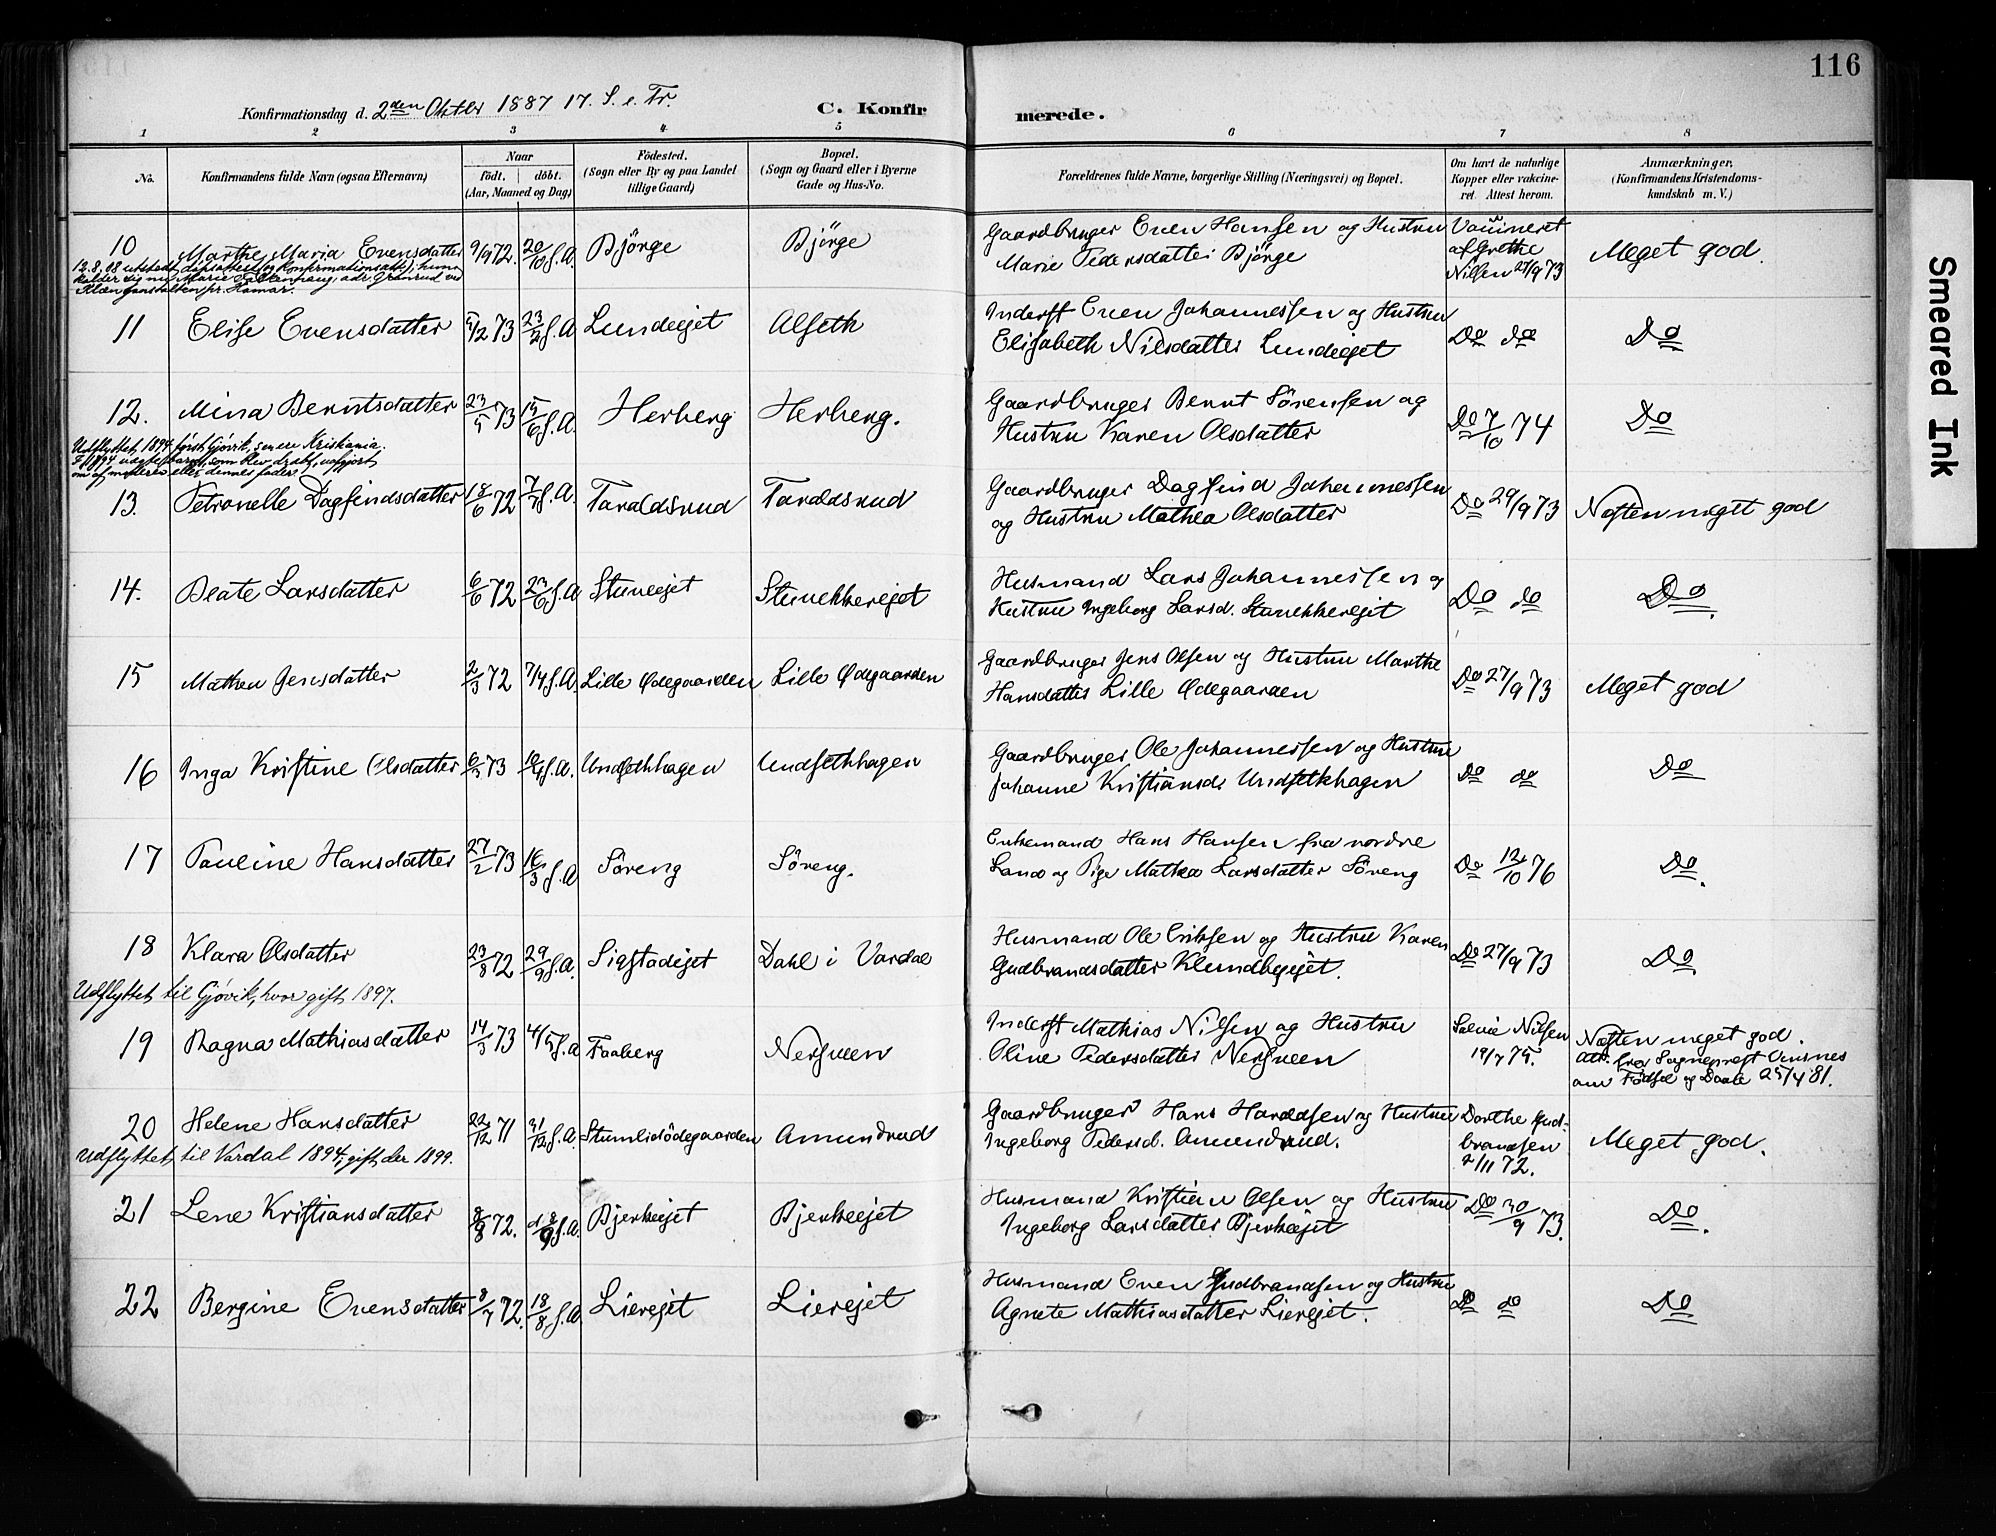 116
Konfirmationsdag d. 2den Oktbr 1887 17. S. e. Tr.
C. Konfirmerede.
1 2 3 4 5 6 7 8
No.
Konfirmandens fulde Navn (ogsaa Efternavn)
Naar
født. døbt.
(Aar, Maaned og Dag)
Fødested.
(Sogn eller By og paa Landet
tillige Gaard)
Bopæl.
(Sogn og Gaard eller i Byerne
Gade og Hus-No.
Forældrenes fulde Navne, borgerlige Stilling (Næringsvei) og Bopæl.
Om havt de naturlige
Kopper eller vakcine-
ret Attest herom.
Anmærkninger,
(Konfirmandens Kristendoms-
kundskab m. V.)
10 Marthe Maria Evensdatter 9/9 72. 20/10 s.A. Bjørge Bjørge
Gaardbruger Even Hansen og Hustru
Marie Pedersdatter Bjørge
Vaccineret
af Grethe
Nilsen 27/9 73
Meget god.
12.8.08 utstedt dåpsattest (og konfirmationsatt);
kalder sig nu Marie
pr. Hamar.
11 Elise Evensdatter 5/12 73 23/2 s.A. Lundeejet Alseth
Inderst Even Johannessen og Hustru
Elisabeth Nilsdatter Lundeejet
Do do
Do
12. Mina Berntsdatter 23/5 73 15/6 s.A. Herberg Herberg.
Gaardbruger Bernt Sørensen og
Hustru Karen Olsdatter
Do 7/10 74
Do
Udflyttet 1894 først Gjøvik, senere Kristiania.
13. Petronelle Dagfindsdatter 18/6 72 7/7 s.A. Taraldsrud Taraldsrud
Gaardbruger Dagfind Johannessen
og Hustru Mathea Olsdatter
Do 29/9 73
Næsten meget god
14. Beate Larsdatter 6/6 72 23/6 s.A Stuneejet Stunekkerejet
Husmand Lars Johannessen og
Hustru Ingeborg Larsd. Stunekkerejet
Do do
Do.
15 Mathea Jensdatter 2/3 72 7/4 s.A. Lille Ødegaarden Lille Ødegaarden
Gaardbruger Jens Olsen og Hustru Marthe
Hansdatter Lille Ødegaarden
Do 27/9 73
Meget god
16 Inga Kristine Olsdatter 73 s.A. Undsethhagen Undsethhagen
Gaardbruger Ole Johannessen og Hustru
Johanne Kristiansd. Undsethhagen
Do do
Do
17 Pauline Hansdatter 27/2 73 16/3 s.A Søreng Søreng.
Enkemand Hans Hansen fra nordre
Land og Pige Mathea Larsdatter Søreng
Do 12/10 76
Do.
18 Klara Olsdatter 23/8 72 29/9 s.A. Sigstadejet Dahl i Vardal
Husmand Ole Eriksen og Hustru Karen
Gudbrandsdatter Klundbyejet.
Do 27/9 73
Do
Udflyttet til Gjøvik, hvor gift 1897.
19 Ragna Mathiasdatter 14/3 73 4/5 s.A Faaberg Nersveen
Inderst Mathias Nilsen og Hustru
Oline Pedersdatter Nersveen
Nilsen
19/7 75.
Næsten meget god.
Att. fra Sogneprest
om Fødsel og Daab 25/4 81.
20 Helene Hansdatter 22/12 71 31/12 s.A. Stumlidødegaarden Amundrud
Gaardbruger Hans Haraldsen og Hustru
Ingeborg Pedersd. Amundrud.
Dorthe Gud-
brandsen
2/11 72.
Meget god.
Udflyttet til Vardal 1894; gift der 1899.
21 Lene Kristiansdatter 8/8 72. 18/9 s.A. Bjerkeejet Bjerkeejet
Husmand Kristian Olsen og Hustru
Ingeborg Larsdatter Bjerkeejet
Do 30/9 73.
Do.
22 Bergine Evensdatter 8/7 72. 18/8 s.A. Lierejet Lierejet
Husmand Even Gudbrandsen og Hustru
Agnete Mathiasdatter Lierejet.
Do do
Do
Smeared Ink